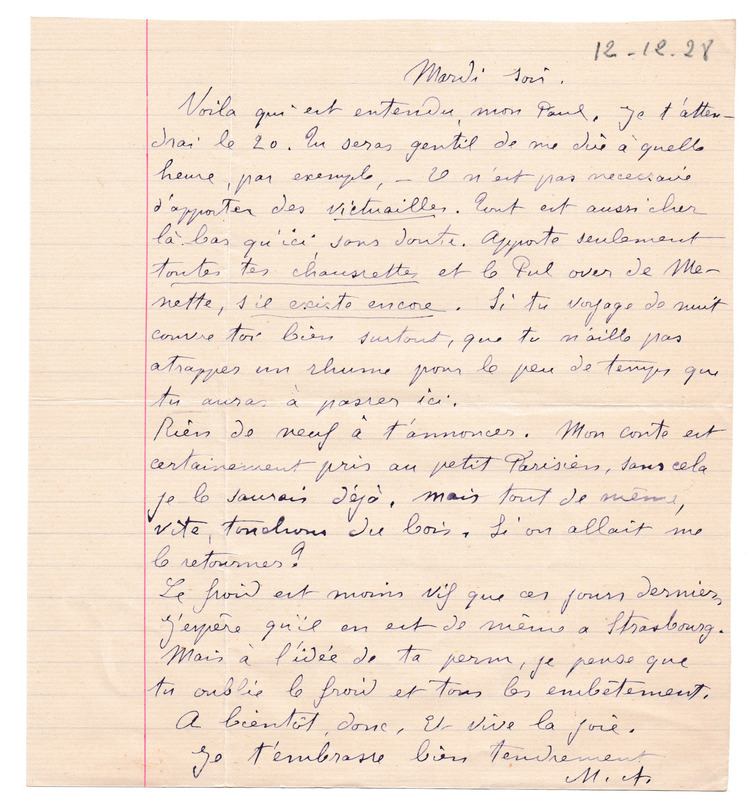 12-12.28
Mardi soir.
Voila qui est entendu, mon Paul. Je t'atten-
drai le 20. Tu seras gentil de me dire à quelle
heure, par exemple, – Il n'est pas necessaire
d'apporter des victuailles. Tout est aussi cher
là-bas qu'ici sans doute. Apporte seulement
toutes tes chaussettes et le Pul over de Me-
nette, s'il existe encore. Si tu voyage de nuit
couvre toi bien surtout, que tu n'aille pas
atrapper un rhume pour le peu de temps que
tu auras à passer ici.
Rien de neuf à t'annoncer. Mon conte est
certainement pris au petit Parisien, sans cela
je le saurais déjà. Mais tout de même,
vite, touchons du bois. Si on allait me
le retourner?
Le froid est moins vif que ces jours derniers,
j'espère qu'il en est de même a Strasbourg.
Mais à l'idée de ta perm, je pense que
tu oublie le froid et tous les embêtement.
A bientôt, donc, Et vive la joie.
Je t'embrasse bien tendrement
M. A.